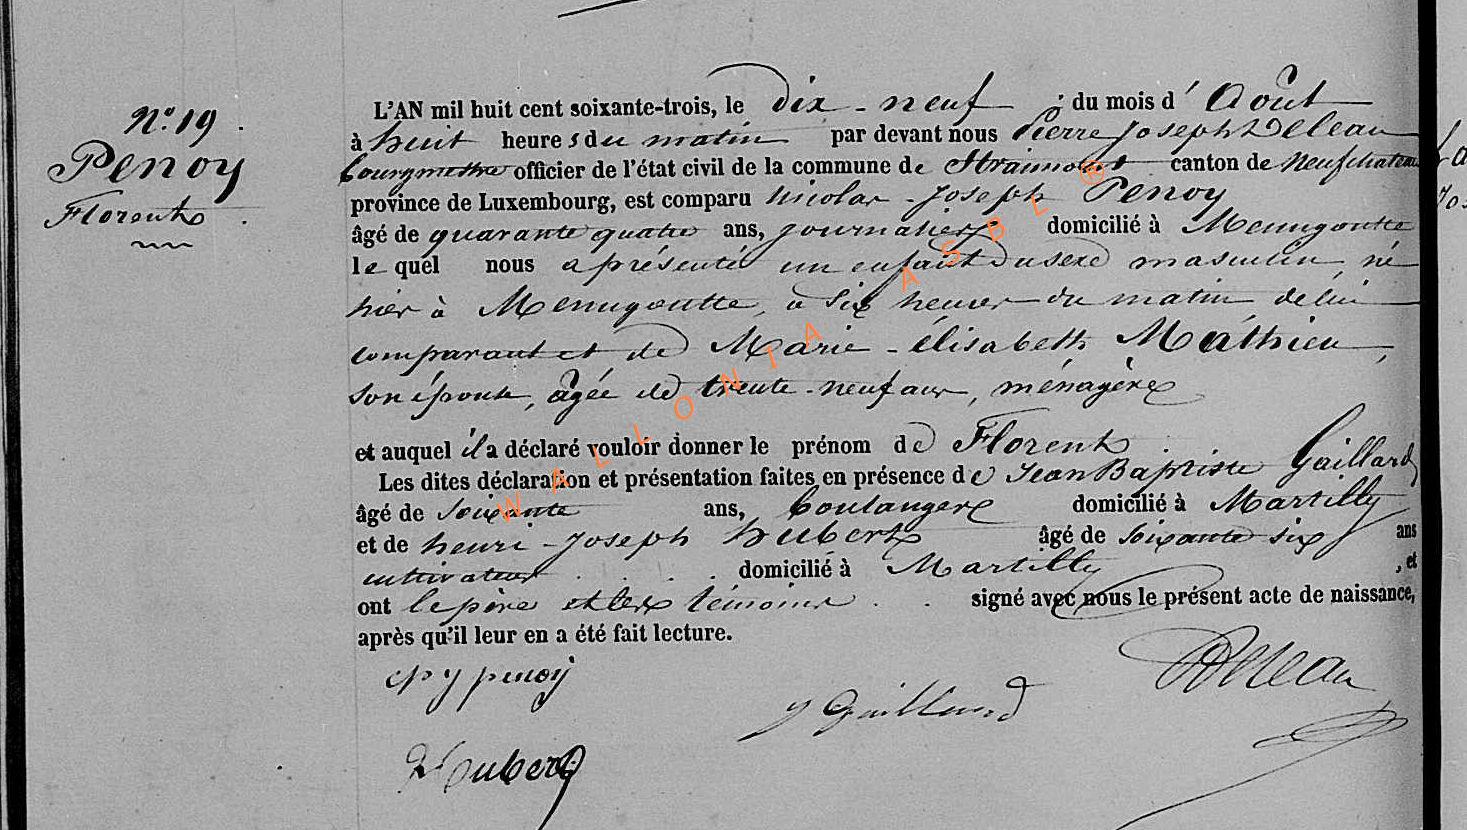 N° 19.
Penoy
Florent.
L'AN mil huit cent soixante-trois, le dix-neuf du mois d'Août
à huit heures du matin par devant nous Pierre Joseph Deleau
bourgmestre officier de l'état civil de la commune de Straimont canton de Neufchateau
province de Luxembourg, est comparu Nicolas-Joseph Penoy
âgé de quarante quatre ans, journalier domicilié à Menugoutte
lequel nous a présenté un enfant du sexe masculin, né
hier à Menugoutte, à six heures du matin de lui
comparant et de Marie-élisabeth Mathieu,
son épouse, âgée de trente-neuf ans, ménagère
et auquel il a déclaré vouloir donner le prénom de Florent
Les dites déclaration et présentation faites en présence de Jean Baptiste Gaillard
âgé de soixante ans, boulanger domicilié à Martilly
et de henri-Joseph hubert âgé de soixante six ans
cultivateur . . . . domicilié à Martilly, et
ont le père et les témoins . . signé avec nous le présent acte de naissance,
après qu'il leur en a été fait lecture.
penoy
J Gaillard
Deleau
Hubert
WALLONIA ASBL ®